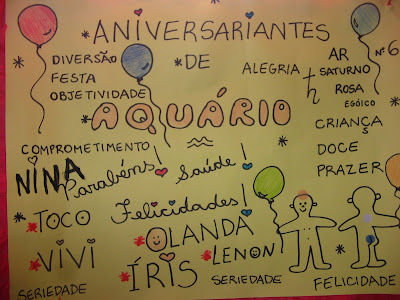 ANIVERSARIANTES
DE
AQUÁRIO
DIVERSÃO
FESTA
OBJETIVIDADE
ALEGRIA
AR
Nº 6
SATURNO
ROSA
EGÓICO
CRIANÇS
DOCE
PRAZER
COMPROMETIMENTO
NINA
Parabéns!
Saúde!
Felicidades!
TOCO
OLANDA
VIVI
LENON
ÍRIS
SERIEDADE
SERIEDADE
FELICIDADE